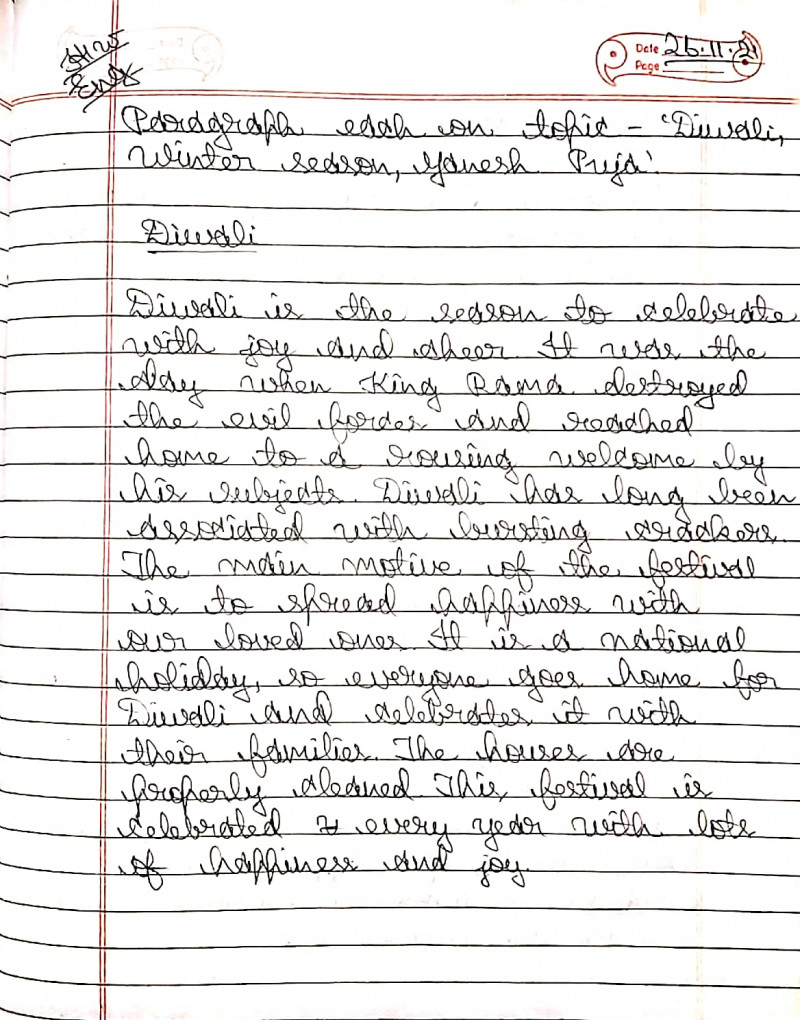 H.W
Eng
Date 26.11.21
Page
Paragraph each on topic - 'Diwali,
Winter season, Ganesh Puja'.
Diwali
Diwali is the season to celebrate
with joy and cheer. It was the
day when King Rama destroyed
the evil forces and reached
home to a rousing welcome by
his subjects. Diwali has long been
associated with bursting crackers.
The main motive of the festival
is to spread happiness with
our loved ones. It is a national
holiday, so everyone goes home for
Diwali and celebrates it with
their families. The houses are
properly cleaned. This, festival is
celebrated every year with lots
of happiness and joy.